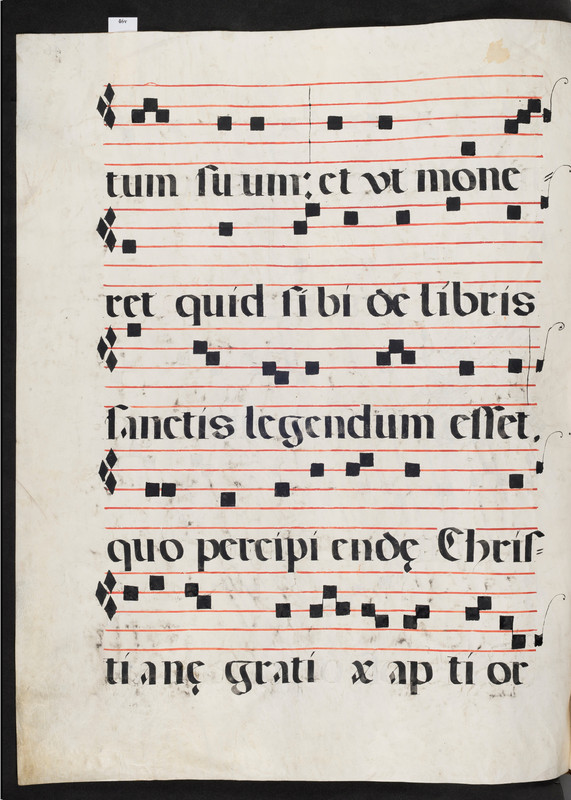 86v
tum ſu um: et vt mone
ret quid ſi bi de libris
ſanctis legendum eſſet,
quo percipi endę Chriſ=
ti anę grati æ ap ti or